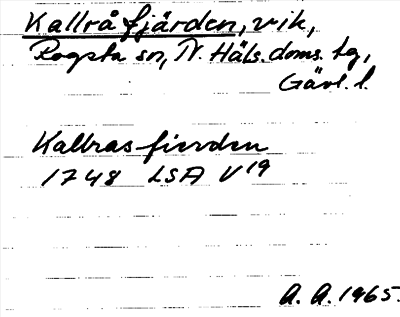 Kallrå fjärden, vik,
Rogsta sn, N. Häls. doms. tg,
Gävl. l.
Kallras fierden
1748 LSA V19
A. A. 1965.